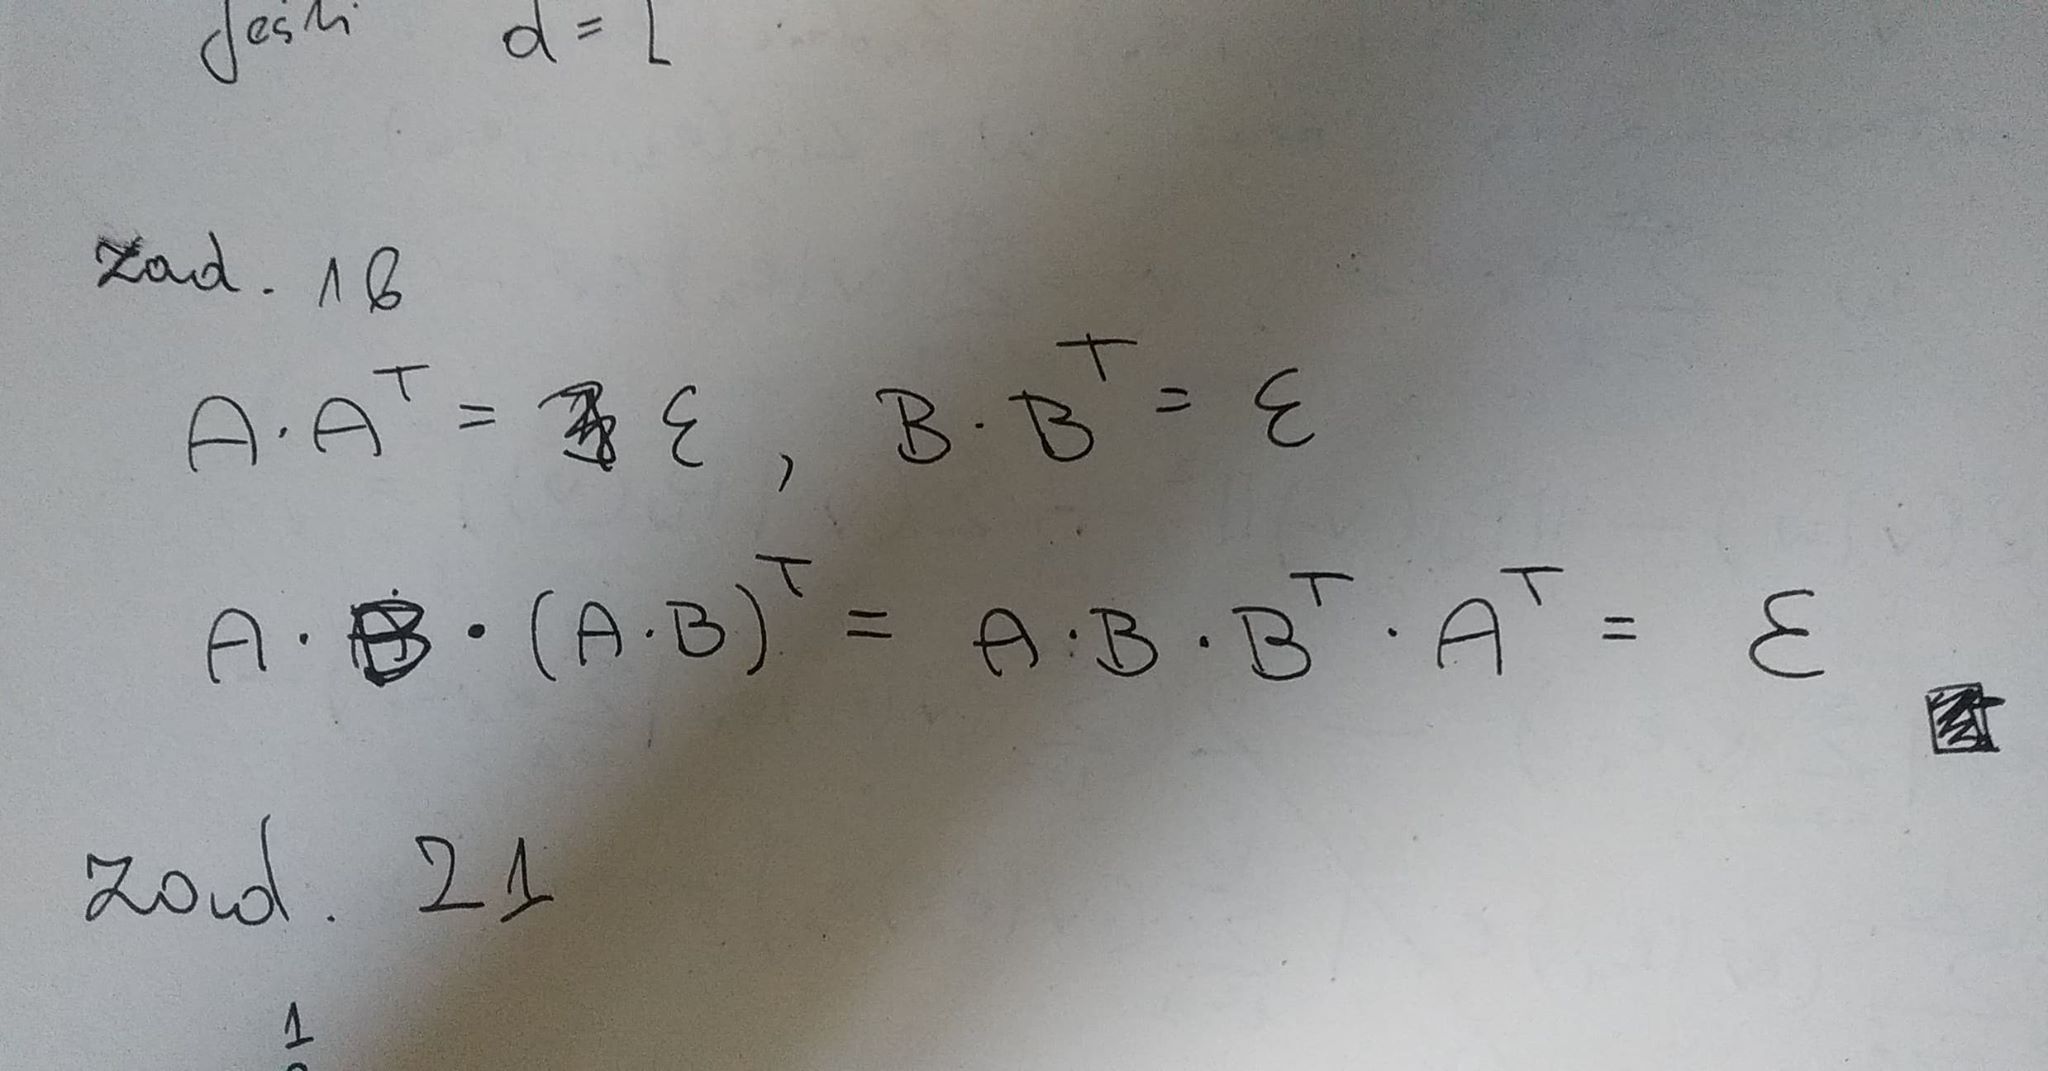 Jeśli d = [
Zad. 18
A · Aᵀ = ε , B · Bᵀ = ε
A · B · (A · B)ᵀ = A · B · Bᵀ · Aᵀ = ε
Zad. 21
1